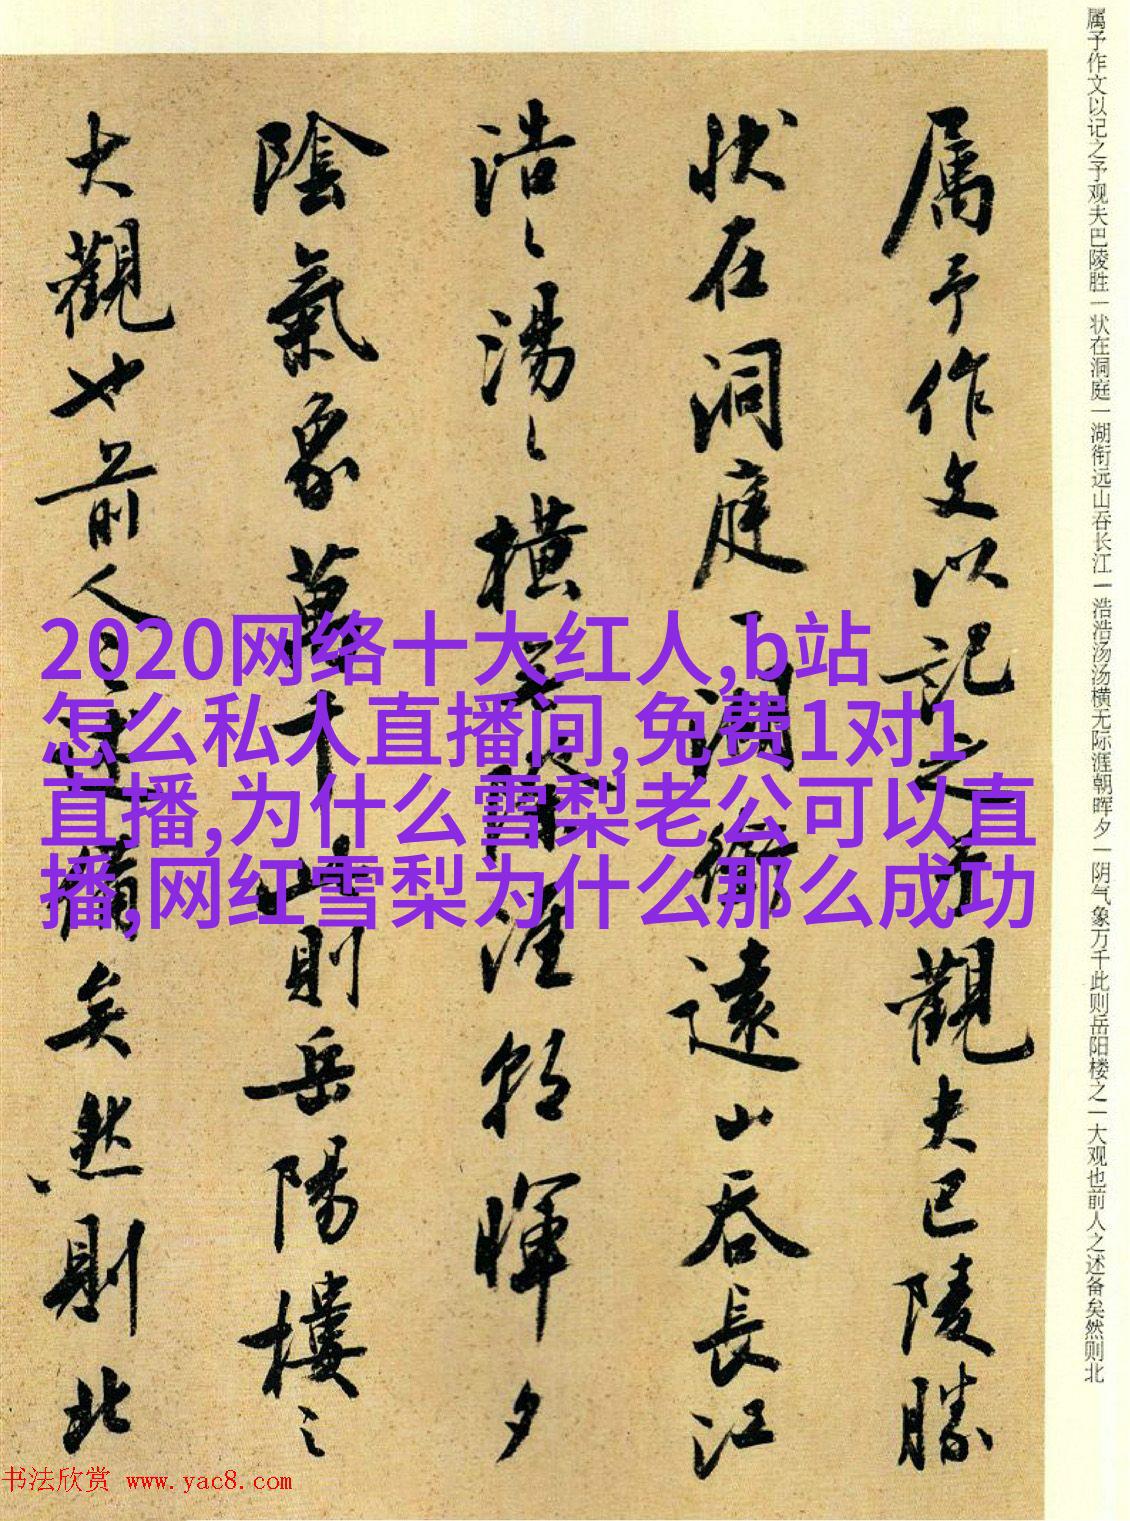 属予作文以记之予观夫巴陵胜
状在洞庭一湖衔远山吞長江
浩〻湯〻橫无际涯朝暉夕
陰氣象萬千此則岳陽樓之
大觀也前人之述備矣然則北
属予作文以记之予观夫巴陵胜一状在洞庭一湖衔远山吞长江一浩浩汤汤横无际涯朝晖夕一阴气象万千此则岳阳楼之一大观也前人之述备矣然则北
2020网络十大红人,b站
怎么私人直播间,免费1对1
直播,为什么雪梨老公可以直
播,网红雪梨为什么那么成功
书法欣赏 www.yac8.com